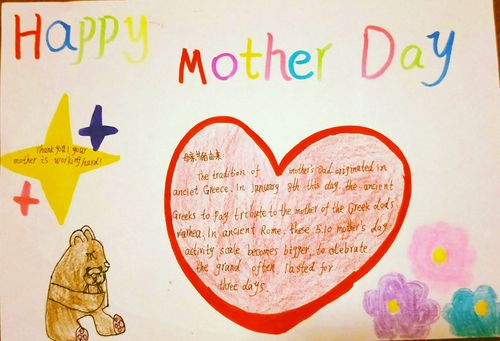 Happy Mother Day
Thank you! your
mother is working hard!
母亲节的由来:
The tradition of mother's Dad originated in
anciet Greece. In January 8th this day, the ancient
Greeks to pay tribute to the mother of the Greek Gods
In ancient Rome, these 5.10 mother's day
activity scale becomes bigger, to celebrate
the grand often lasted for
three days